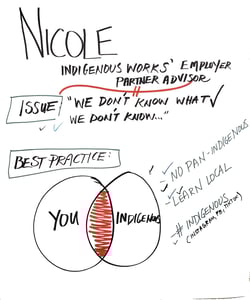 NICOLE
INDIGENOUS WORKS' EMPLOYER
PARTNER ADVISOR
ISSUE
"WE DON'T KNOW WHAT
WE DON'T KNOW..."
BEST PRACTICE:
YOU
INDIGENOUS
NO PAN-INDIGENOUS
LEARN LOCAL
# INDIGENOUS